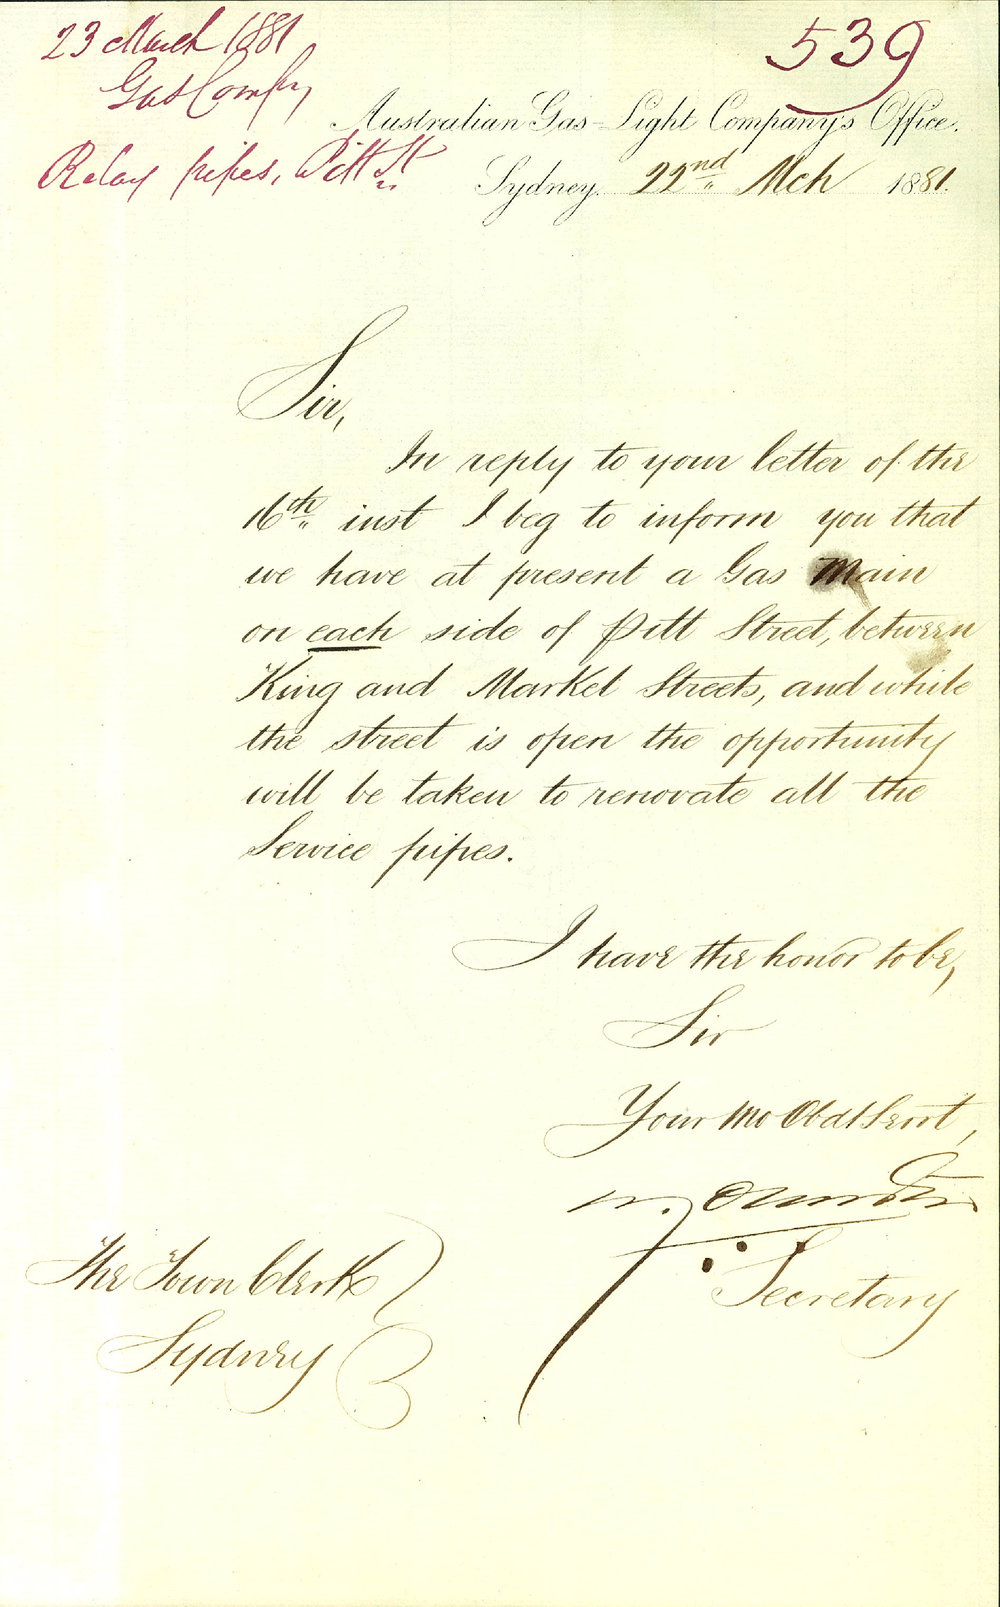 23 March 1881
539
Gas Compy
Australian Gas-Light Company's Office.
Relay pipes, Pitt St
Sydney 22nd Mch 1881.
Sir,
In reply to your letter of the
16th inst I beg to inform you that
we have at present a Gas Main
on each side of Pitt Street, between
King and Market Streets, and while
the street is open the opportunity
will be taken to renovate all the
Service pipes.
I have the honor to be,
Sir
Your Mo Obdt Servt,
Secretary
The Town Clerk
Sydney